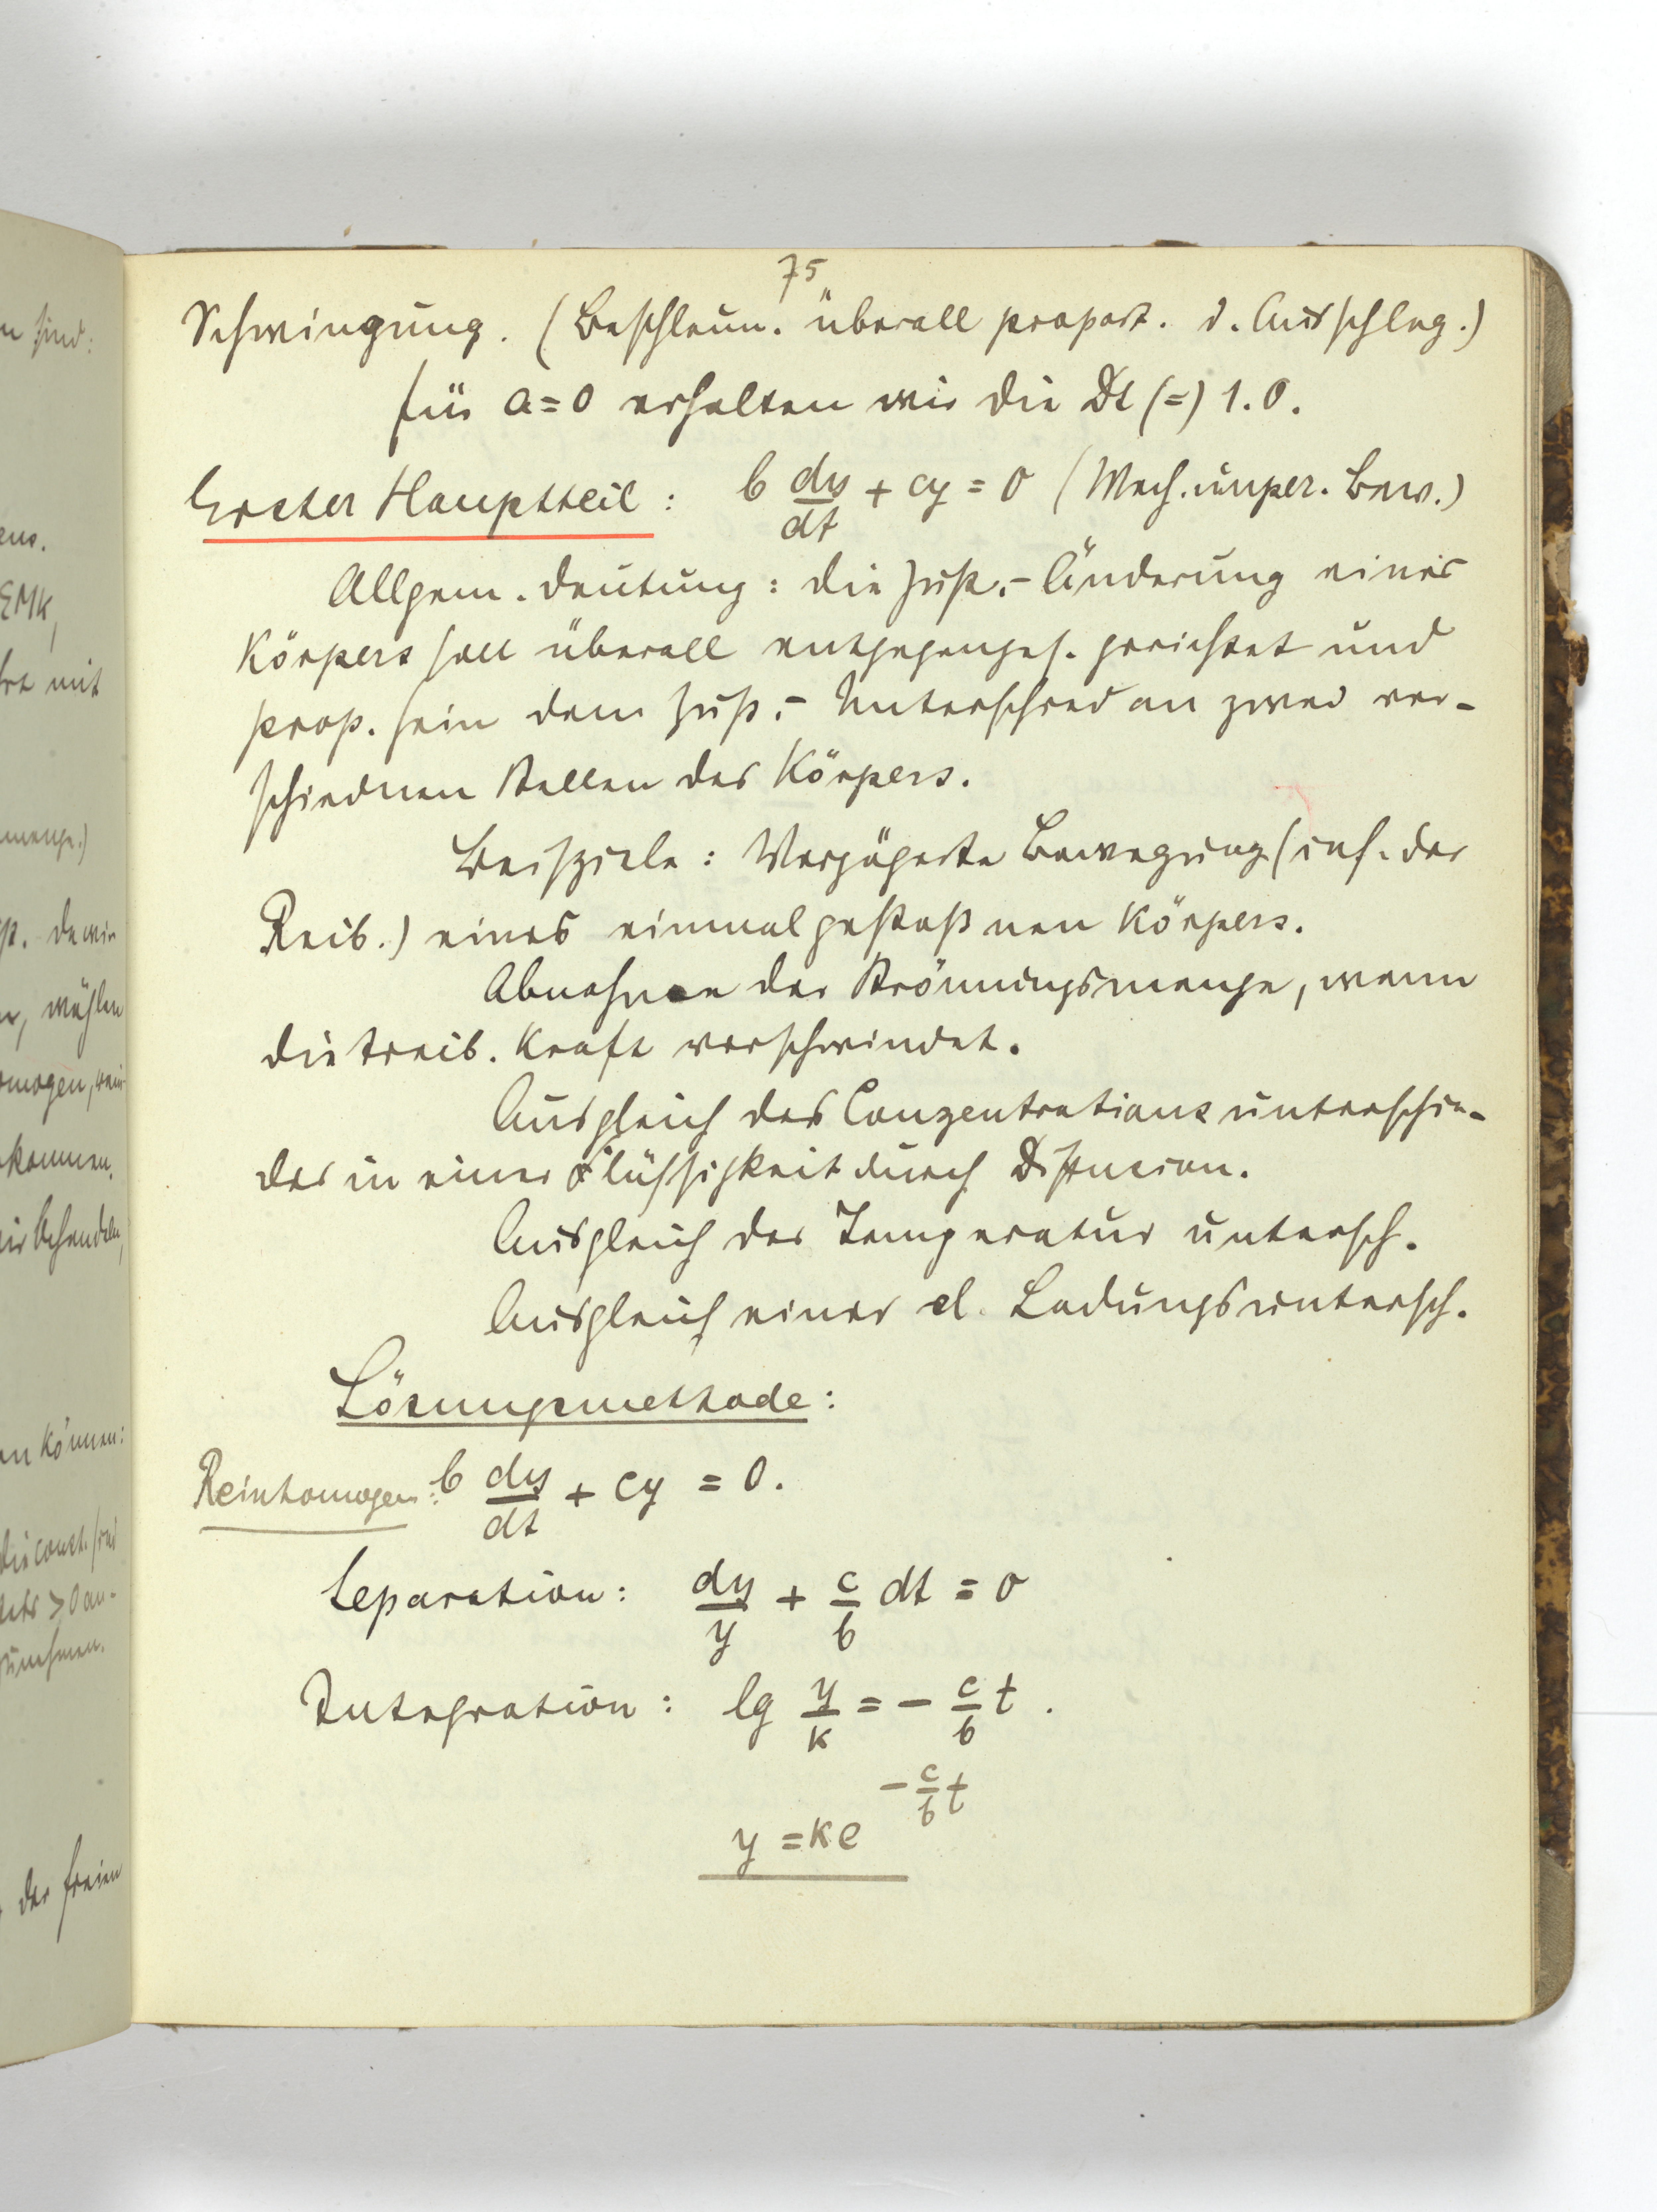 75
Schwingung. (Beschleun. überall proport. d. Ausschlag.)
für a=0 erhalten wir die Dl (=) 1.O.
Erster Hauptteil: b dy/dt + cy = 0 (Mech. unper. Bew.)
Allgem. Deutung: die Zust.-Änderung eines
Körpers soll überall entgegenges. gerichtet und
prop. sein dem Zust.-Unterschied an zwei ver-
schiednen Stellen des Körpers.
Beispiele: Verzögerte Bewegung (inf. der
Reib.) eines einmal gestoßnen Körpers.
Abnahme der Strömungsmenge, wenn
die treib. Kraft verschwindet.
Ausgleich des Conzentrationsunterschie-
des in einer Flüssigkeit durch Diffusion.
Ausgleich der Temperatur untersch.
Ausgleich eines el. Ladungsuntersch.
Lösungsmethode:
Reinhomogen: b dy/dt + cy = 0.
Separation: dy/y + c/b dt = 0
Integration: lg y/k = - c/b t.
y = k e^(-c/b t)
sind:
EMK,
mit
wählen
behandeln,
können:
die const. sind
stets > 0 an-
zunehmen.
der freien